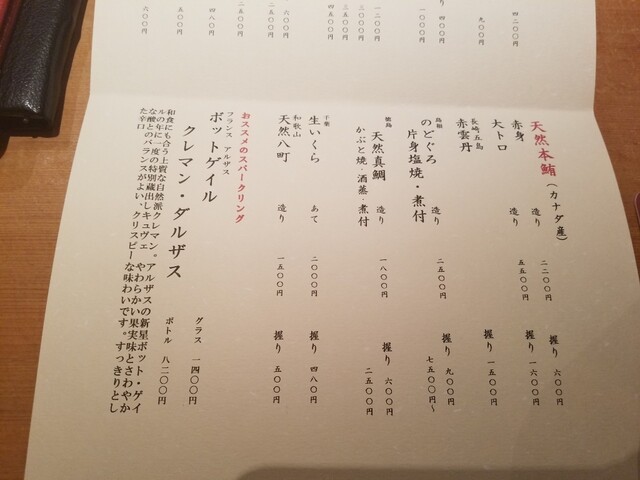 四二〇〇円
九〇〇円
り 四〇〇円
一〇〇〇円
一二〇〇円
三〇〇〇円
三五〇〇円
四五〇〇円
六〇〇円
二五〇〇円
四八〇円
五〇〇円
六〇〇円
天然本鮪(カナダ産)
赤身 造り 二二〇〇円 握り 六〇〇円
大トロ 造り 五五〇〇円 握り 一六〇〇円
長崎五島
赤雲丹 握り 一五〇〇円
島根
のどぐろ 造り 二五〇〇円 握り 九〇〇円
片身塩焼・煮付 七五〇〇円～
徳島
天然真鯛 造り 一八〇〇円 握り 六〇〇円
かぶと焼・酒蒸・煮付 二五〇〇円
千葉
生いくら あて 二〇〇〇円 握り 四八〇円
和歌山
天然八町 造り 一五〇〇円 握り 五〇〇円
おススメのスパークリング
フランス アルザス
ボットゲイル
クレマン・ダルザス グラス 一四〇〇円
ボトル 八二〇〇円
和食にも合う上質な自然派クレマン。アルザスの新星ボット・ゲイ
ルの年に一度の特別蔵出しキュヴェ やわらかい果実味とさわやか
な酸とのバランスがよい、クリスピーな味わいです。すっきりとし
た辛口